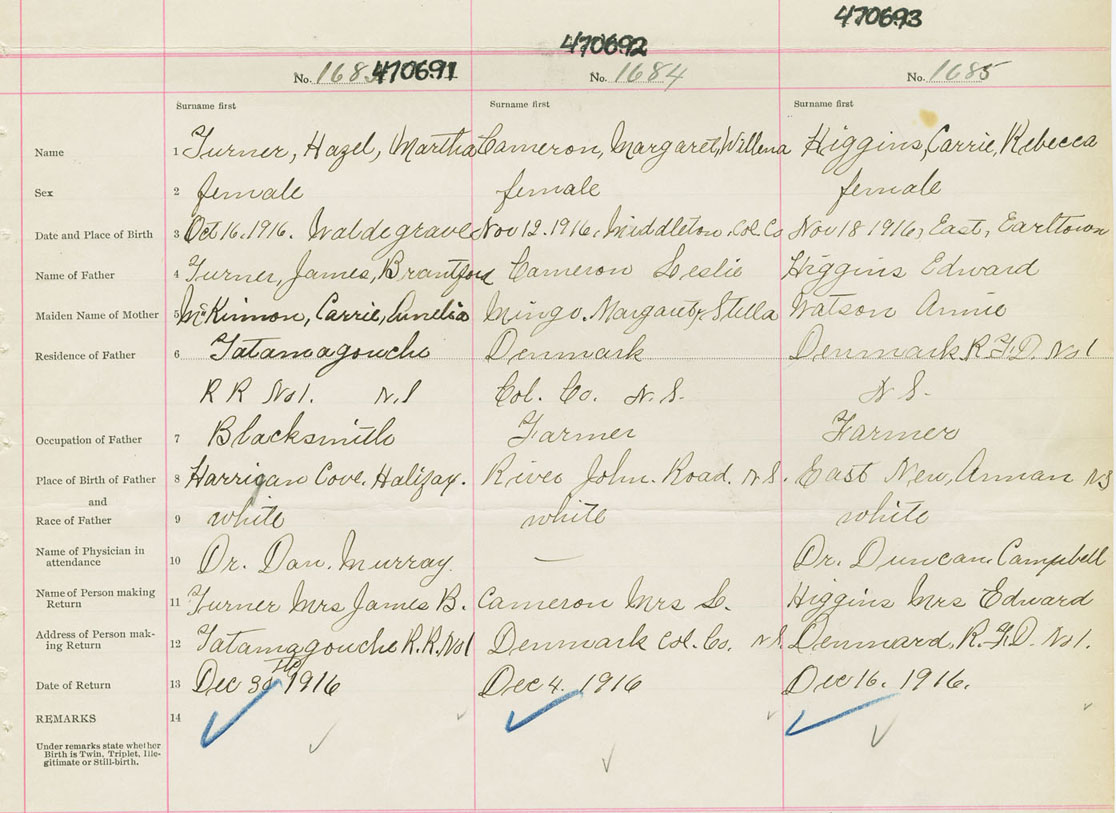 470693
470692
No. 1683 470691 No. 1684 No. 1685
Surname first Surname first Surname first
Name 1 Turner, Hazel, Martha Cameron, Margaret, Willena Higgins, Carrie, Rebecca
Sex 2 female female female
Date and Place of Birth 3 Oct 16. 1916. Waldegrave Nov 12. 1916, Middleton, Col. Co Nov 18 1916, East, Earltown
Name of Father 4 Turner, James, Brantford Cameron Leslie Higgins Edward
Maiden Name of Mother 5 McKinnon, Carrie, Amelia Mingo. Margaret, Stella Watson Annie
Residence of Father 6 Tatamagouche Denmark Denmark R.F.D. No 1
R R No 1. N.S Col. Co. N.S. N S.
Occupation of Father 7 Blacksmith Farmer Farmer
Place of Birth of Father 8 Harrigan Cove. Halifax. River John. Road. N.S. East New, Annan NS
and
Race of Father 9 white white white
Name of Physician in
attendance 10 Dr. Dan. Murray. — Dr. Duncan. Campbell
Name of Person making
Return 11 Turner Mrs James B. Cameron Mrs L. Higgins Mrs Edward
Address of Person mak-
ing Return 12 Tatamagouche R.R. No 1 Denmark Col. Co. N.S. Denmard, R.F.D. No 1.
Date of Return 13 Dec 30th 1916 Dec 4. 1916 Dec 16. 1916.
REMARKS 14
Under remarks state whether
Birth is Twin, Triplet, Ille-
gitimate or Still-birth.